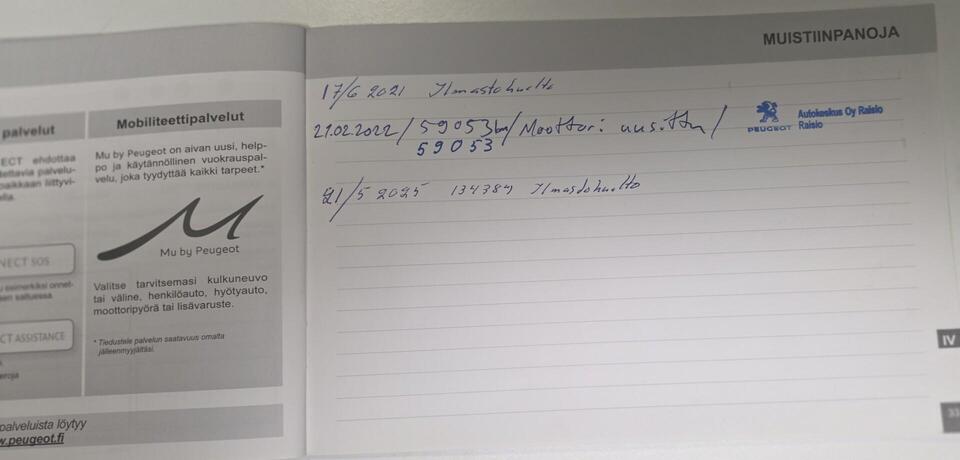 palvelut
ECT ehdottaa
NECT SOS
CT ASSISTANCE
palveluista löytyy
w.peugeot.fi
Mobiliteettipalvelut
Mu by Peugeot on aivan uusi, help-
po ja käytännöllinen vuokrauspal-
velu, joka tyydyttää kaikki tarpeet.*
Mu by Peugeot
Valitse tarvitsemasi kulkuneuvo
tai väline, henkilöauto, hyötyauto,
moottoripyörä tai lisävaruste.
* Tiedustele palvelun saatavuus omalta
jälleenmyyjältäsi.
MUISTIINPANOJA
17/6 2021 Ilmastohuolto
21.02.2022/59053km/Moottori uusittu/
59053
PEUGEOT Autokeskus Oy Raisio
Raisio
21/5 2025 134384 Ilmastohuolto
IV
33